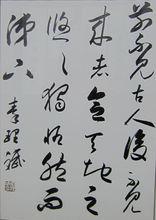 前不見古人後不見
来者念天地之
悠々獨愴然而
涕下 李